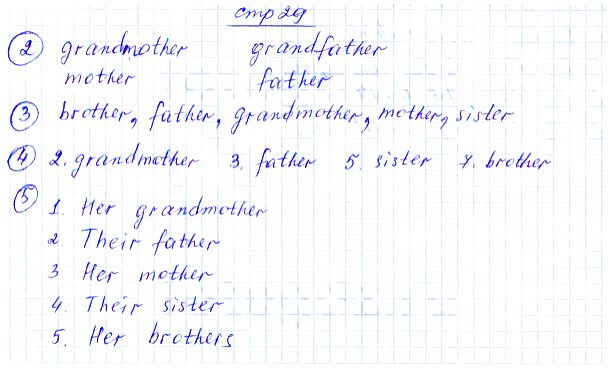 стр 29
② grandmother grandfather
mother father
③ brother, father, grandmother, mother, sister
④ 2. grandmother 3. father 5. sister 7. brother
⑤ 1. Her grandmother
2. Their father
3 Her mother
4. Their sister
5. Her brothers